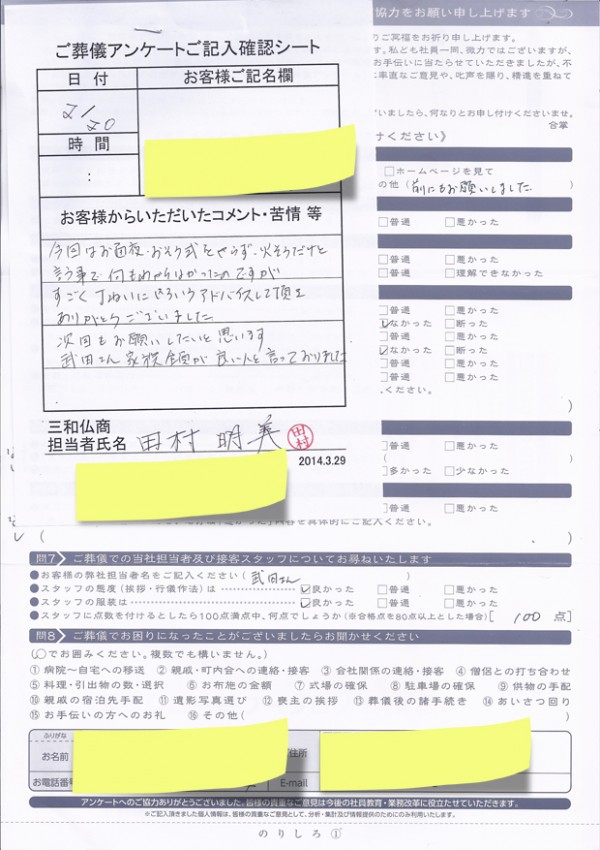 協力をお願い申し上げます
ご冥福をお祈り申し上げます。
す。私ども社員一同、微力ではございますが、
お手伝いに当たらせていただきましたが、不
率直なご意見や、叱声を賜り、精進を重ねて
いましたら、何なりとお申し付けくださいませ。
合掌
けください》
ご葬儀アンケートご記入確認シート
日付
お客様ご記名欄
2/20
時間
:
□ホームページを見て
の他(前にもお願いしました
お客様からいただいたコメント・苦情 等
今回はお通夜・おそう式をやらず、火そうだけと
言う事で何もわからなかったのですが
すごくていねいにいろいろアドバイスして頂き
ありがとうございました
次回もお願いしたいと思います
武田さん家族全員が良い人と言っておりました
□普通 □悪かった
□普通 □悪かった
□普通 □理解できなかった
普通 □悪かった
なかった □断った
普通 □悪かった
なかった □断った
普通 □悪かった
普通 □悪かった
ください。
三和仏商
担当者氏名 田村 明美 田村
2014.3.29
普通 □悪かった
多かった □少なかった
普通 □悪かった
内容を具体的にご記入ください。
なし
なし
問7 ご葬儀での当社担当者及び接客スタッフについてお尋ねいたします
●お客様の弊社担当者名をご記入ください(武田さん)
●スタッフの態度(挨拶・行儀作法)は ☑良かった □普通 □悪かった
●スタッフの服装は ☑良かった □普通 □悪かった
●スタッフに点数を付けるとしたら100点満点中、何点でしょうか(※合格点を80点以上とした場合)[100 点]
問8 ご葬儀でお困りになったことがございましたらお聞かせください
(○でお囲みください。複数でも構いません。)
①病院〜自宅への移送 ②親戚・町内会への連絡・接客 ③会社関係の連絡・接客 ④僧侶との打ち合わせ
⑤料理・引出物の数・選択 ⑥お布地の金額 ⑦式場の確保 ⑧駐車場の確保 ⑨供物の手配
⑩親戚の宿泊先手配 ⑪遺影写真選び ⑫喪主の挨拶 ⑬葬儀後の諸手続き ⑭あいさつ回り
⑮お手伝いの方へのお礼 ⑯その他( )
ふりがな
お名前
住所
お電話番号
E-mail
アンケートへのご協力ありがとうございました。皆様の貴重なご意見は今後の社員教育・業務改革に役立たせていただきます。
※ご記入頂きました個人情報は、皆様の貴重なご意見として、分析・集計及び情報提供のためにのみ利用いたします。
のりしろ①